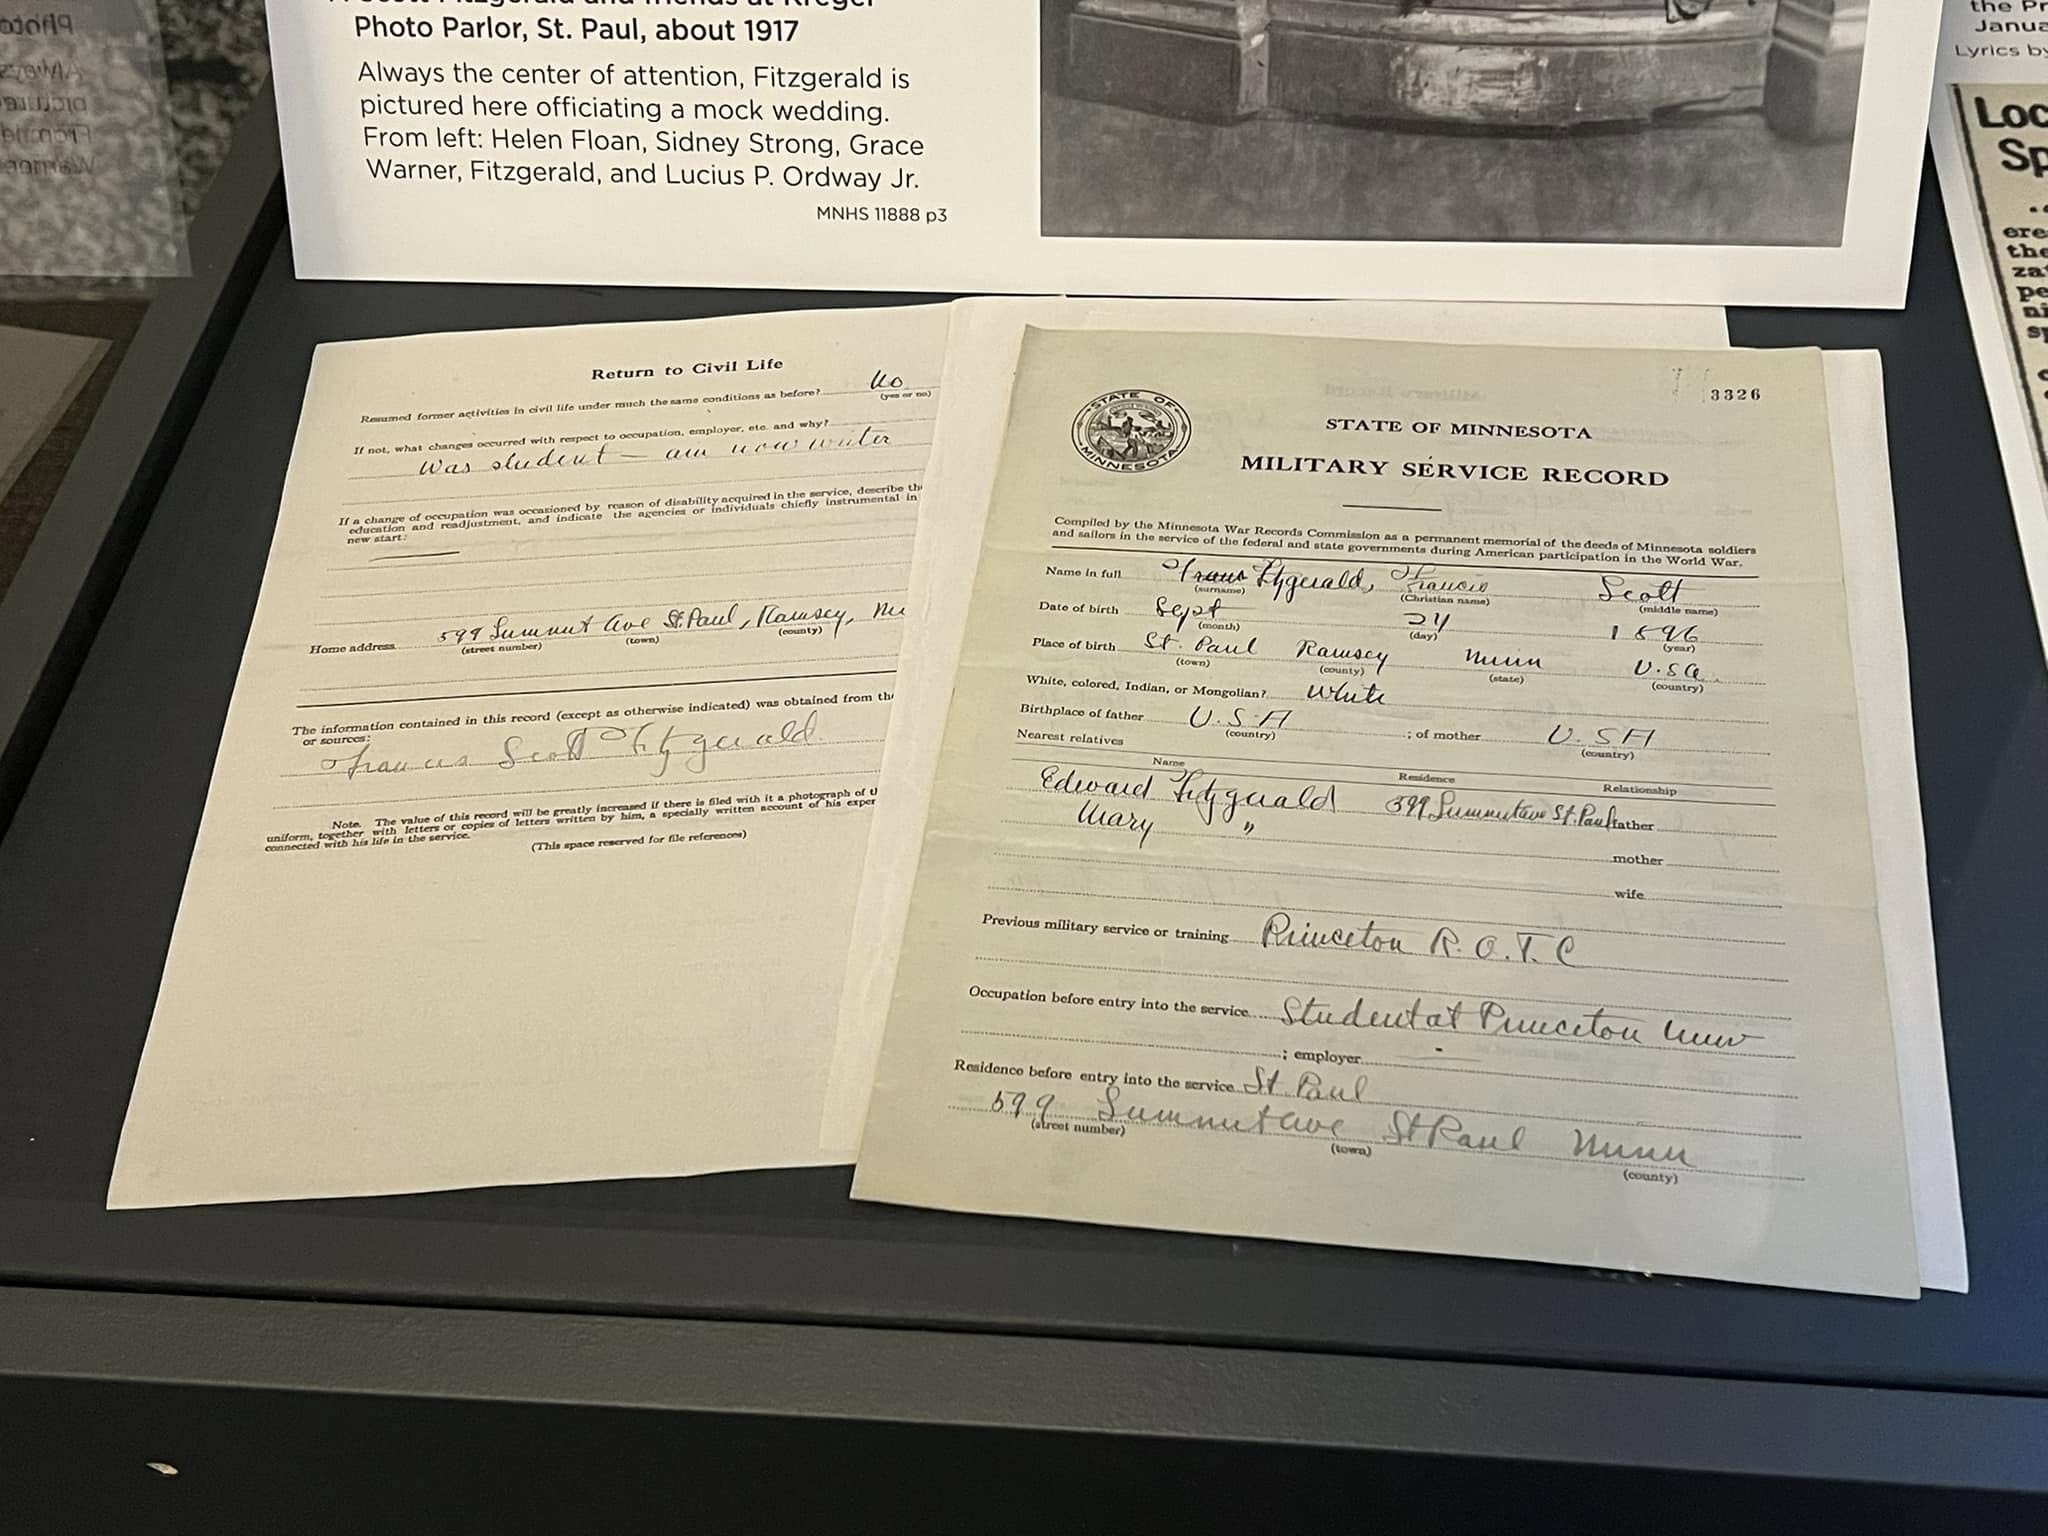 Photo Parlor, St. Paul, about 1917
Always the center of attention, Fitzgerald is
pictured here officiating a mock wedding.
From left: Helen Floan, Sidney Strong, Grace
Warner, Fitzgerald, and Lucius P. Ordway Jr.
MNHS 11888 p3
Return to Civil Life
Resumed former activities in civil life under much the same conditions as before? No
(yes or no)
If not, what changes occurred with respect to occupation, employer, etc. and why?
Was student — am now writer
If a change of occupation was occasioned by reason of disability acquired in the service, describe the
education and readjustment, and indicate the agencies or individuals chiefly instrumental in
new start:
Home address 599 Summit Ave St. Paul, Ramsey,
(street number) (town) (county)
The information contained in this record (except as otherwise indicated) was obtained from the
or sources:
Francis Scott Fitzgerald
Note. The value of this record will be greatly increased if there is filed with it a photograph of
uniform, together with letters or copies of letters written by him, a specially written account of his exper
connected with his life in the service.
(This space reserved for file references)
3326
STATE OF MINNESOTA
STATE OF MINNESOTA
MILITARY SERVICE RECORD
Compiled by the Minnesota War Records Commission as a permanent memorial of the deeds of Minnesota soldiers
and sailors in the service of the federal and state governments during American participation in the World War.
Name in full Fitzgerald, Francis Scott
(surname) (Christian name) (middle name)
Date of birth Sept 24 1896
(month) (day) (year)
Place of birth St. Paul Ramsey Minn U.S.A.
(town) (county) (state) (country)
White, colored, Indian, or Mongolian? White
Birthplace of father U.S.A ; of mother U.S.A
(country) (country)
Nearest relatives
Name Residence Relationship
Edward Fitzgerald 599 Summit Ave St. Paul father
Mary "
mother
wife
Previous military service or training Princeton R.O.T.C
Occupation before entry into the service Student at Princeton Univ
; employer -
Residence before entry into the service St. Paul
599 Summit Ave St Paul Minn
(street number) (town) (county)
the Pr
Janua
Lyrics by
Loc
Sp
ere
the
zat
pe
ni
sp